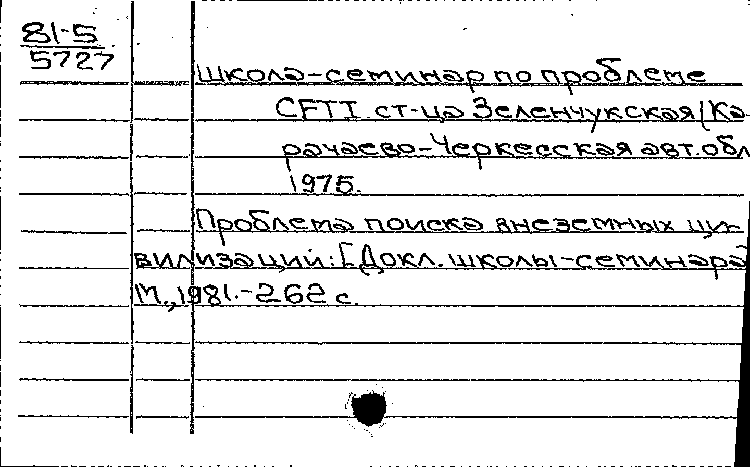 81-5
5727
Школа-семинар по проблеме
CFTI ст-ца Зеленчукская (Ка-
рачаево-Черкесская авт. обл
1975.
Проблема поиска внеземных ци-
вилизаций: [Докл. школы-семинара
М., 1981.-262 с.